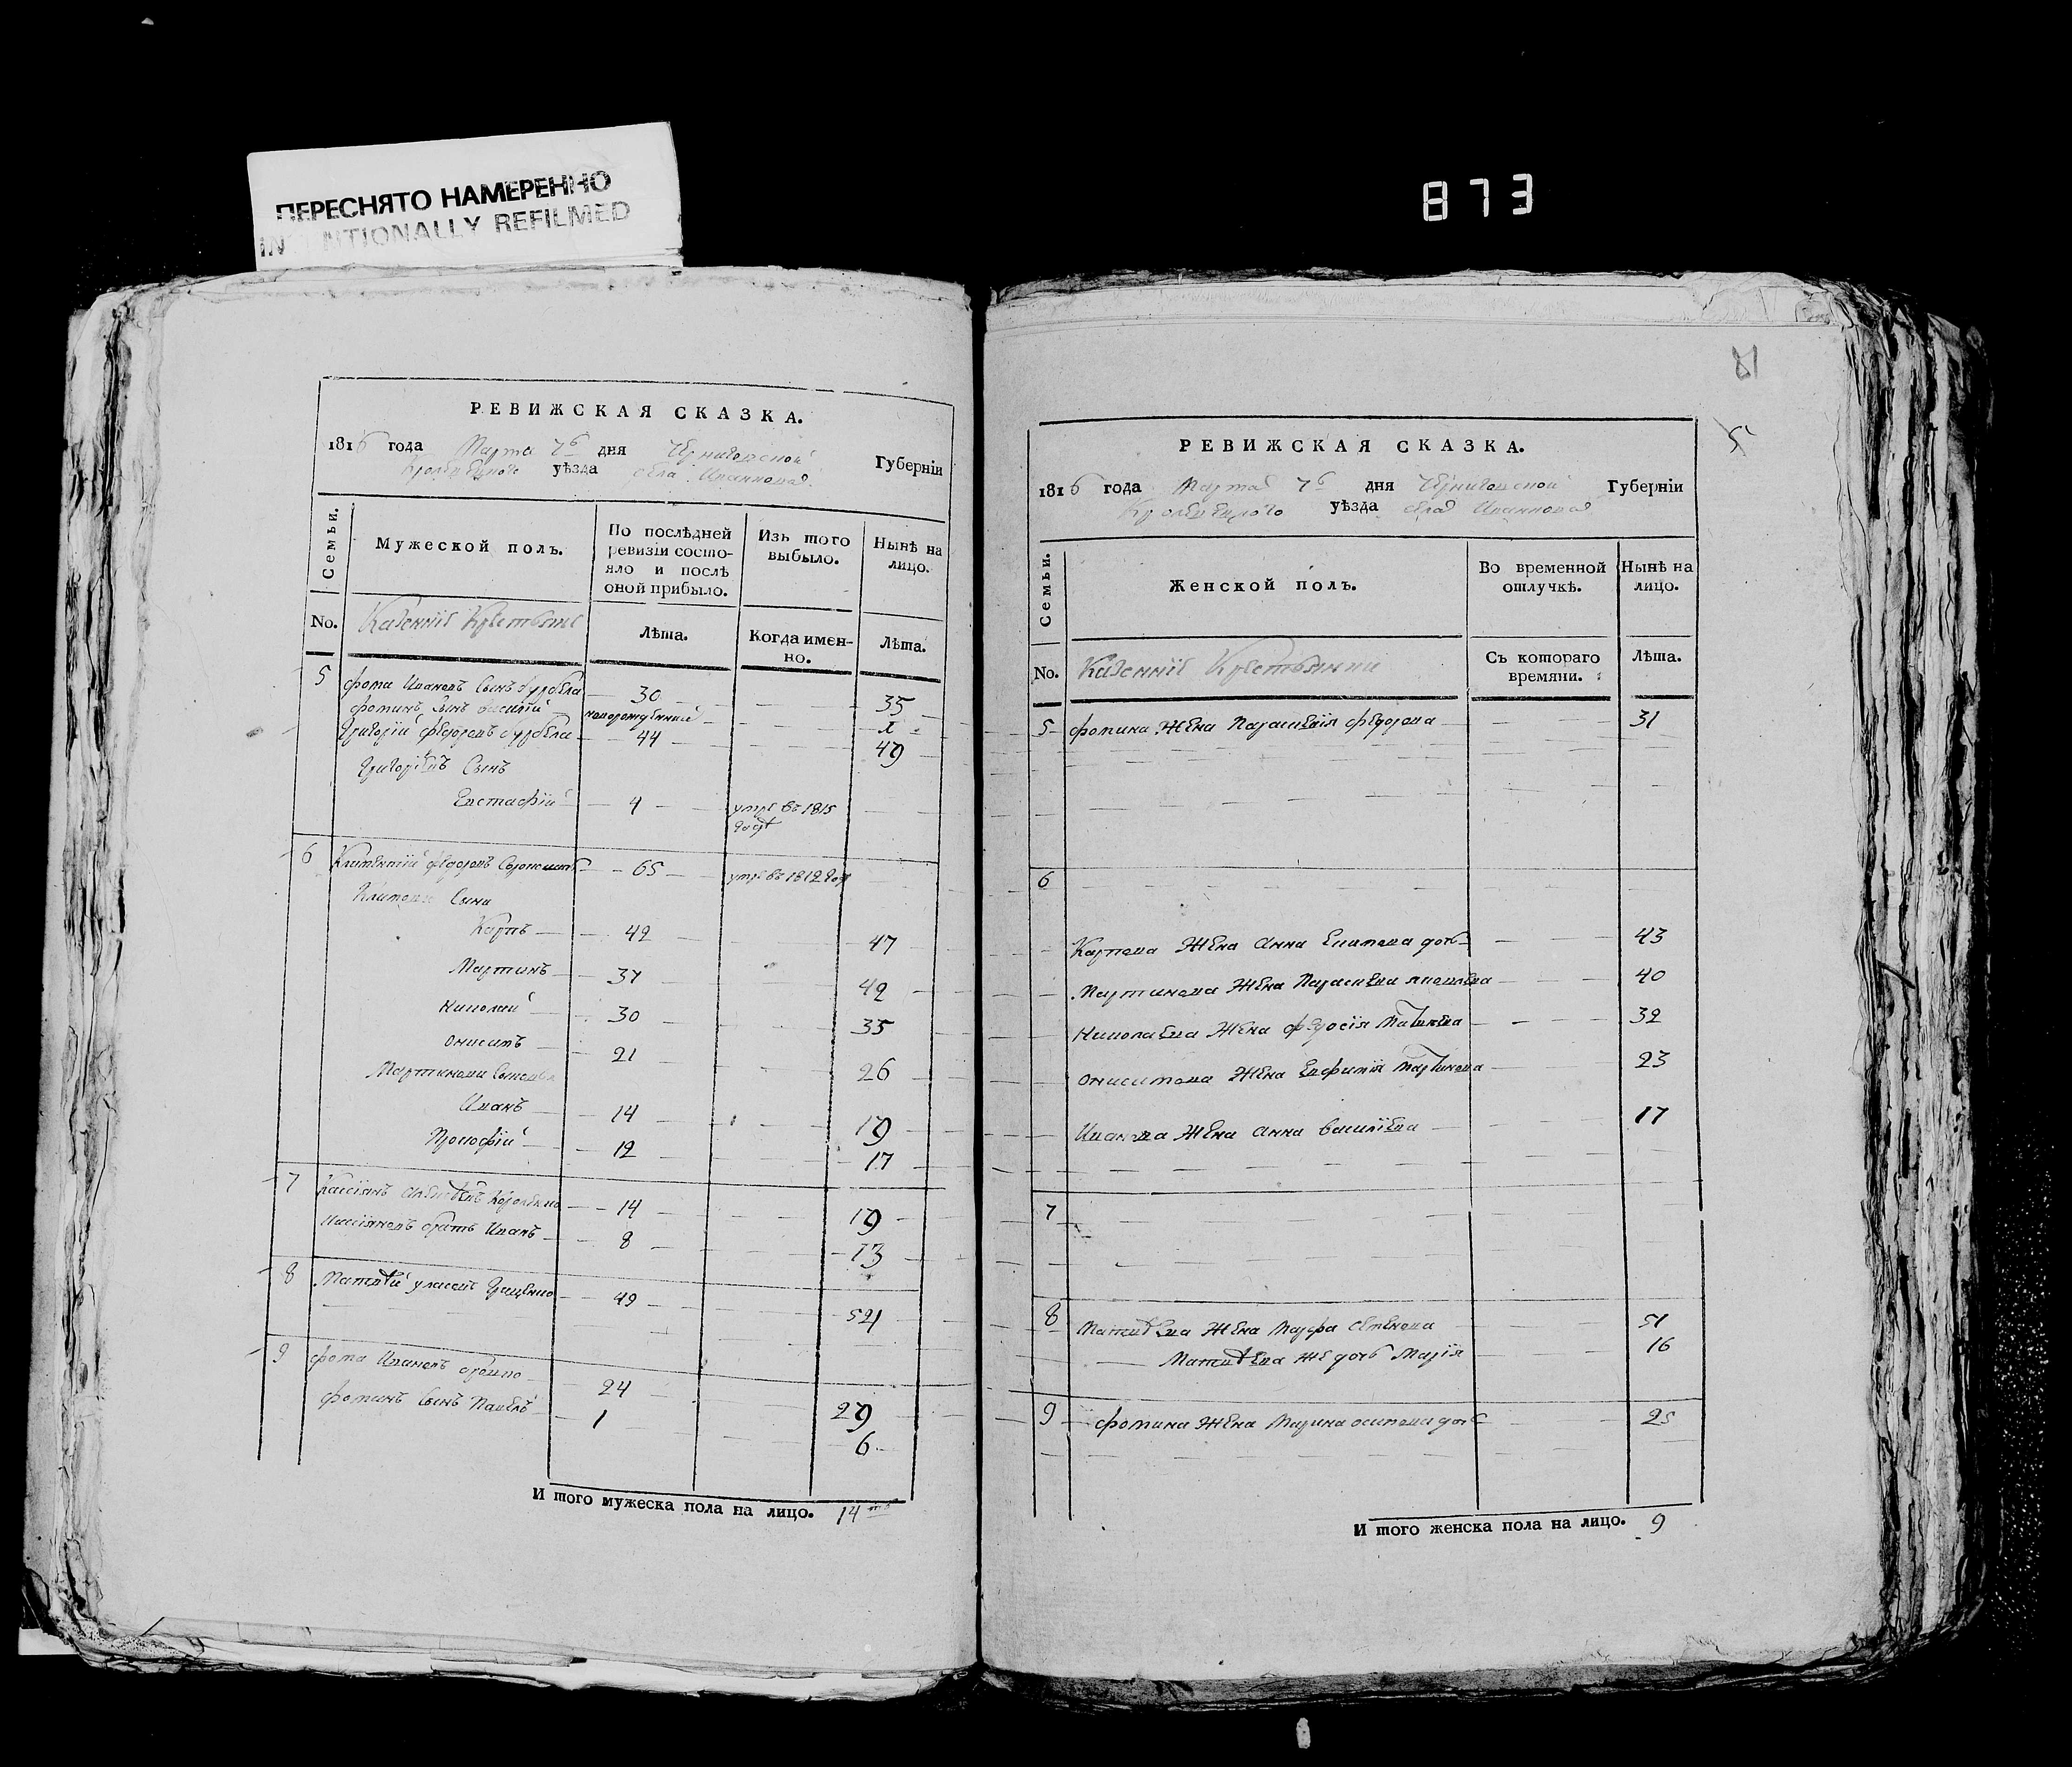 ПЕРЕСНЯТО НАМЕРЕННО
INTENTIONALLY REFILMED
873
РЕВИЖСКАЯ СКАЗКА.
1816 года Марта 7го дня Черниговской Губерніи
уѣзда села
Семьи.
Мужеской полъ.
По послѣдней ревизіи состояло и послѣ оной прибыло.
Изъ того выбыло.
Нынѣ на лицо.
No.
Казенніе Крестьяне
Лѣта.
Когда именно.
Лѣта.
5 фома Ивановъ Сынъ 30 35
фоминъ Сынъ Василій новорожденний
Григорій федоровъ 44 49
Григоріевъ Сынъ
Евстафій 4 умре въ 1815 годѣ
6 федоровъ 65 умре въ 1812 годѣ
Сыни
Карпъ 42 47
Мартинъ 37 42
Николай 30 35
Онисимъ 21 26
Мартинови Синовья
Иванъ 14 19
Прокофій 12 17
7 Кассіянъ 14 19
Кассіяновъ братъ Иванъ 8 13
8 Матвѣй Гриценко 49 54
9 фома Ивановъ 24 29
фоминъ Сынъ Павелъ 1 6
И того мужеска пола на лицо. 14ть
81
5
РЕВИЖСКАЯ СКАЗКА.
1816 года Марта 7го дня Черниговской Губерніи
уѣзда села
Семьи.
Женской полъ.
Во временной отлучкѣ.
Нынѣ на лицо.
No.
Казенніе Крестьянки
Съ котораго времяни.
Лѣта.
5 фомина Жена Параскевія федорова 31
6
Карпова Жена Анна дочь 43
Мартинова Жена Параскева Яковлева 40
Николаева Жена феодосія 32
Онисимова Жена Евфимія Мартинова 23
Иванова Жена Анна Василіева 17
7
8 Матвѣева Жена Марфа Семенова 51
Матвѣева же дочь Марія 16
9 фомина Жена Марина Осипова дочь 25
И того женска пола на лицо. 9